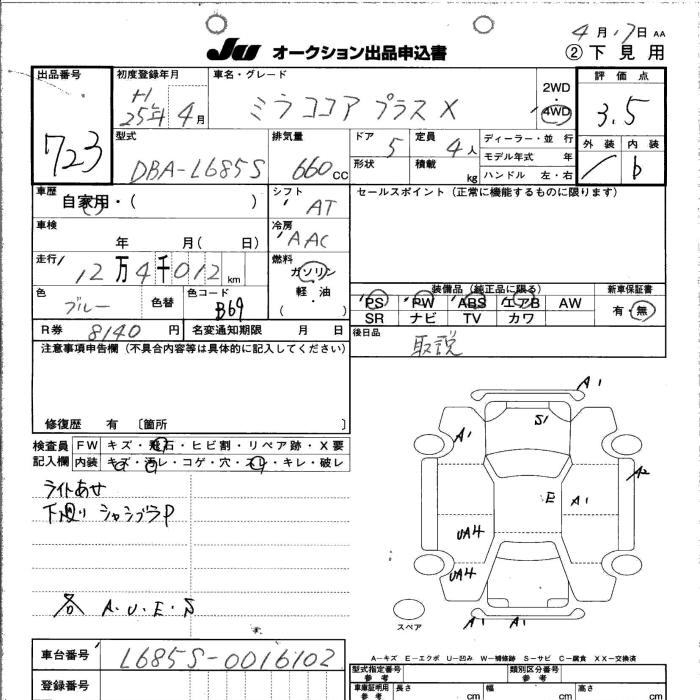 4月17日 AA
JU オークション出品申込書 ②下見用
出品番号 初度登録年月 車名・グレード 評価点
723 H 25年 4月 ミラココア プラスX 2WD・4WD 3.5
型式 排気量 ドア 5 定員 4人 ディーラー・並行 外装 内装
DBA-L685S 660cc 形状 積載 kg モデル年式 年 b
ハンドル 左・右
車歴 自家用・( ) シフト AT セールスポイント(正常に機能するものに限ります)
車検 年 月( 日) 冷房 AAC
走行 12万4千012km 燃料 ガソリン 軽・油 ( )
装備品(純正品に限る) 新車保証書
色 ブルー 色替 色コード B69 PS PW ABS エアB AW 有・無
SR ナビ TV カワ
R券 8140円 名変通知期限 月 日 後日品
取説
注意事項申告欄(不具合内容等は具体的に記入してください)
修復歴 有 〔箇所 〕
検査員 FW キズ・飛石・ヒビ割・リペア跡・X要
記入欄 内装 キズ・汚レ・コゲ・穴・スレ・キレ・破レ
ライトあせ
下廻り シャシブラP
A・U・E・S
A1
S1
A1
A2
E A1
UA4
UA4
A1 A1
スペア
A-キズ E-エクボ U-凹み W-補修跡 S-サビ C-腐食 XX-交換済
車台番号 L685S-0016102
型式指定番号 参考 類別区分番号 参考
登録番号 車庫証明用 参考 長さ cm 幅 cm 高さ cm